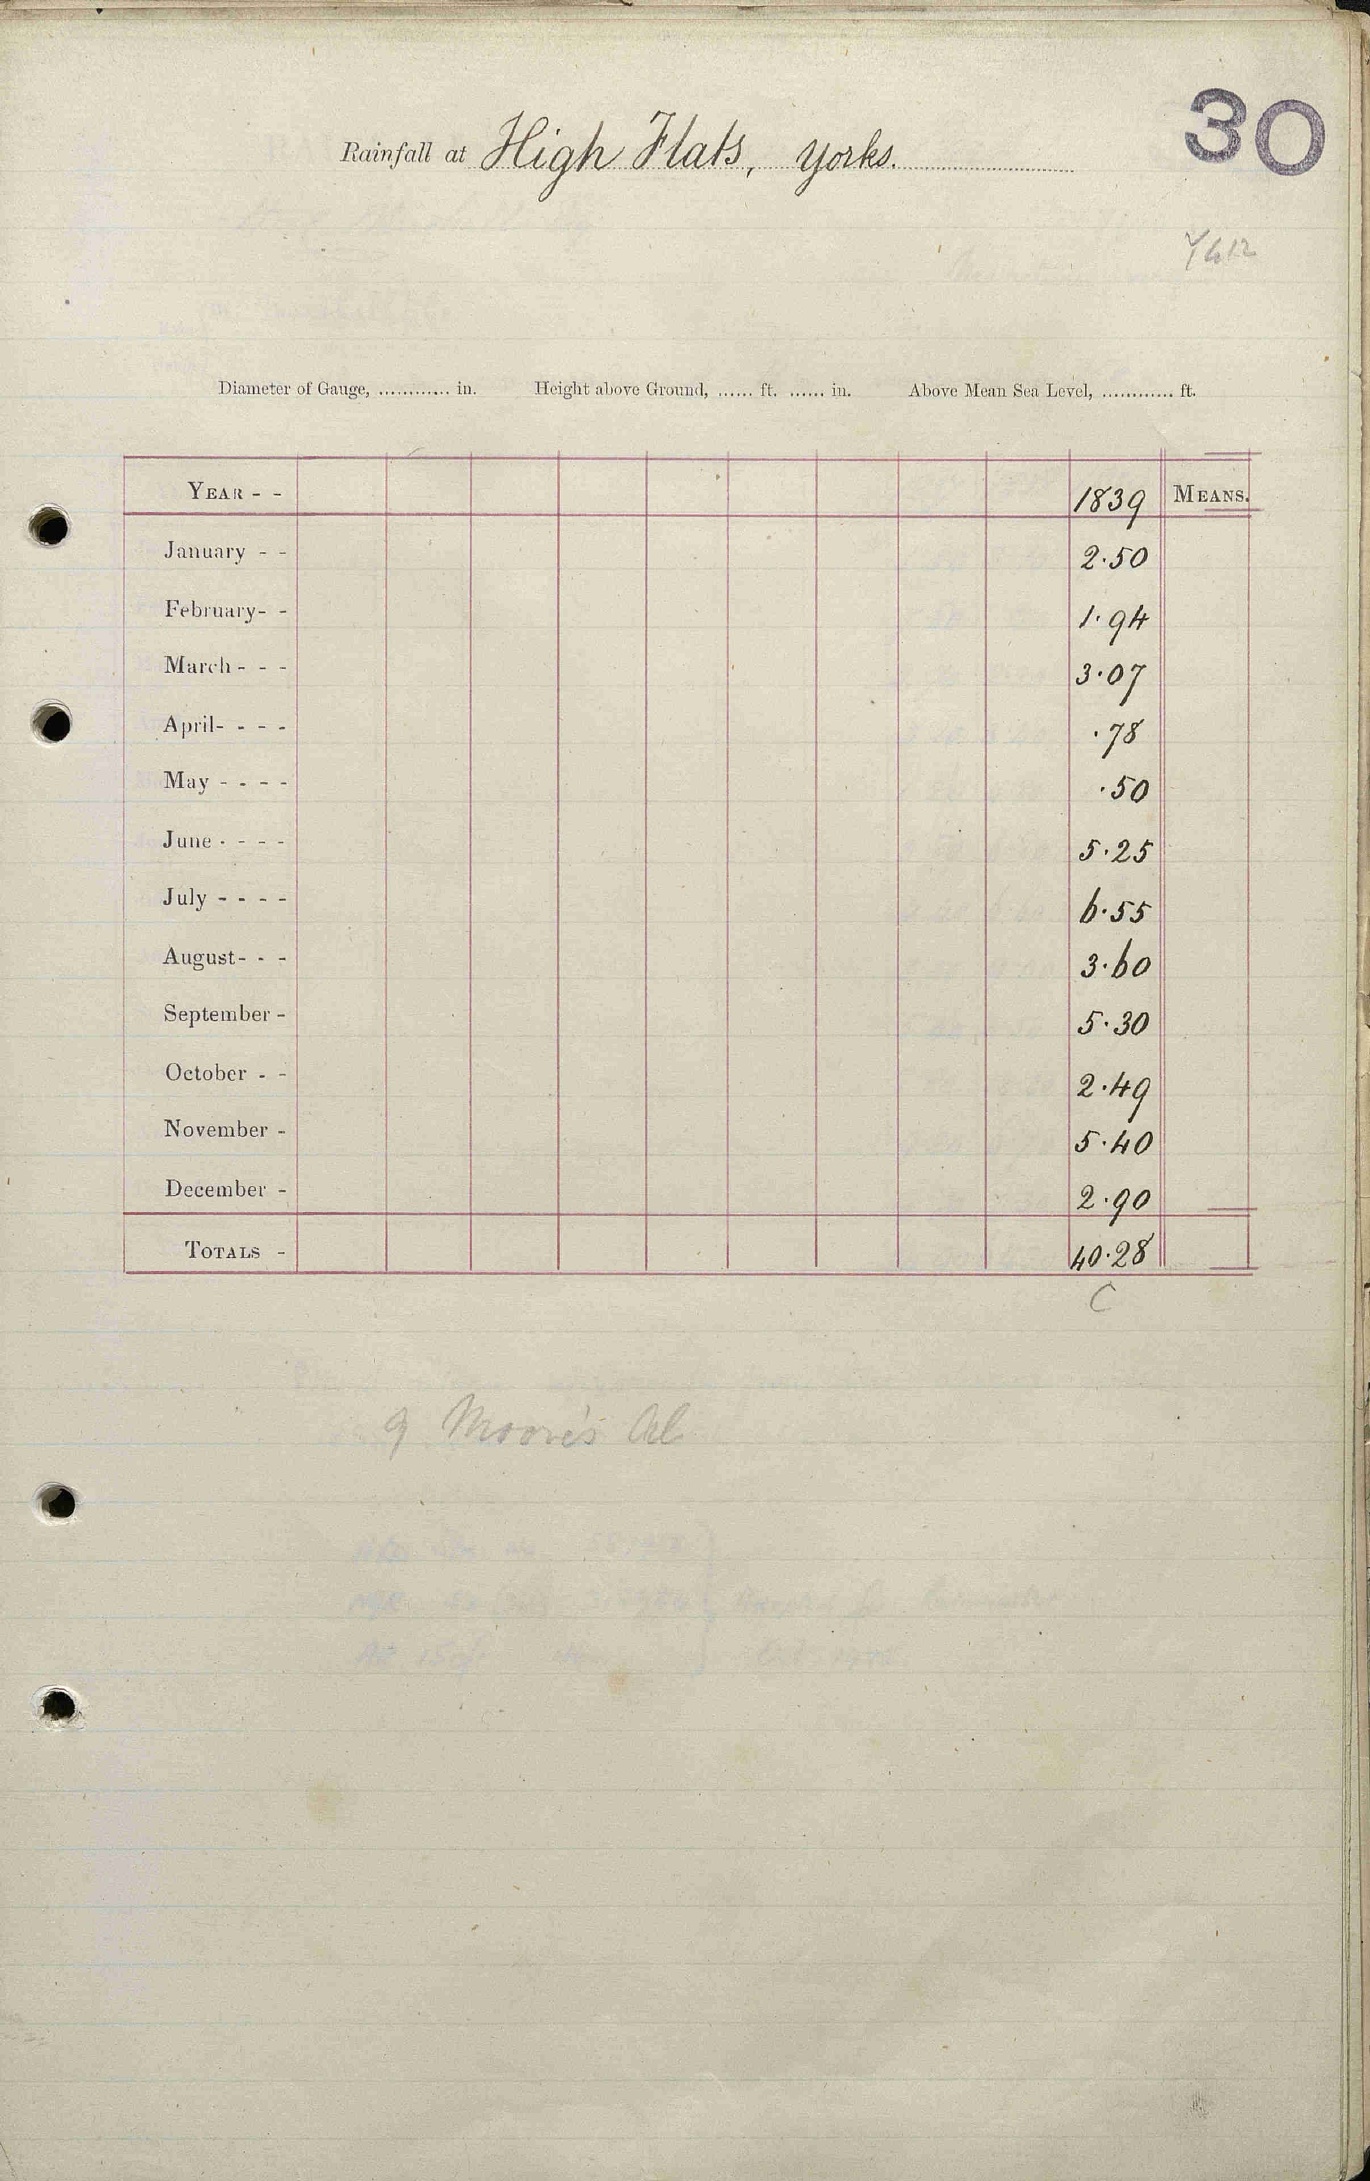 30
Rainfall at High Flats, Yorks.
Diameter of Gauge, ............ in. Height above Ground, ...... ft. ...... in. Above Mean Sea Level, ............ ft.
YEAR - - 1839 MEANS.
January - - 2.50
February- - 1.94
March - - - 3.07
April- - - - .78
May - - - - .50
June - - - - 5.25
July - - - - 6.55
August- - - 3.60
September - 5.30
October - - 2.49
November - 5.40
December - 2.90
TOTALS - 40.28
C
Moore's